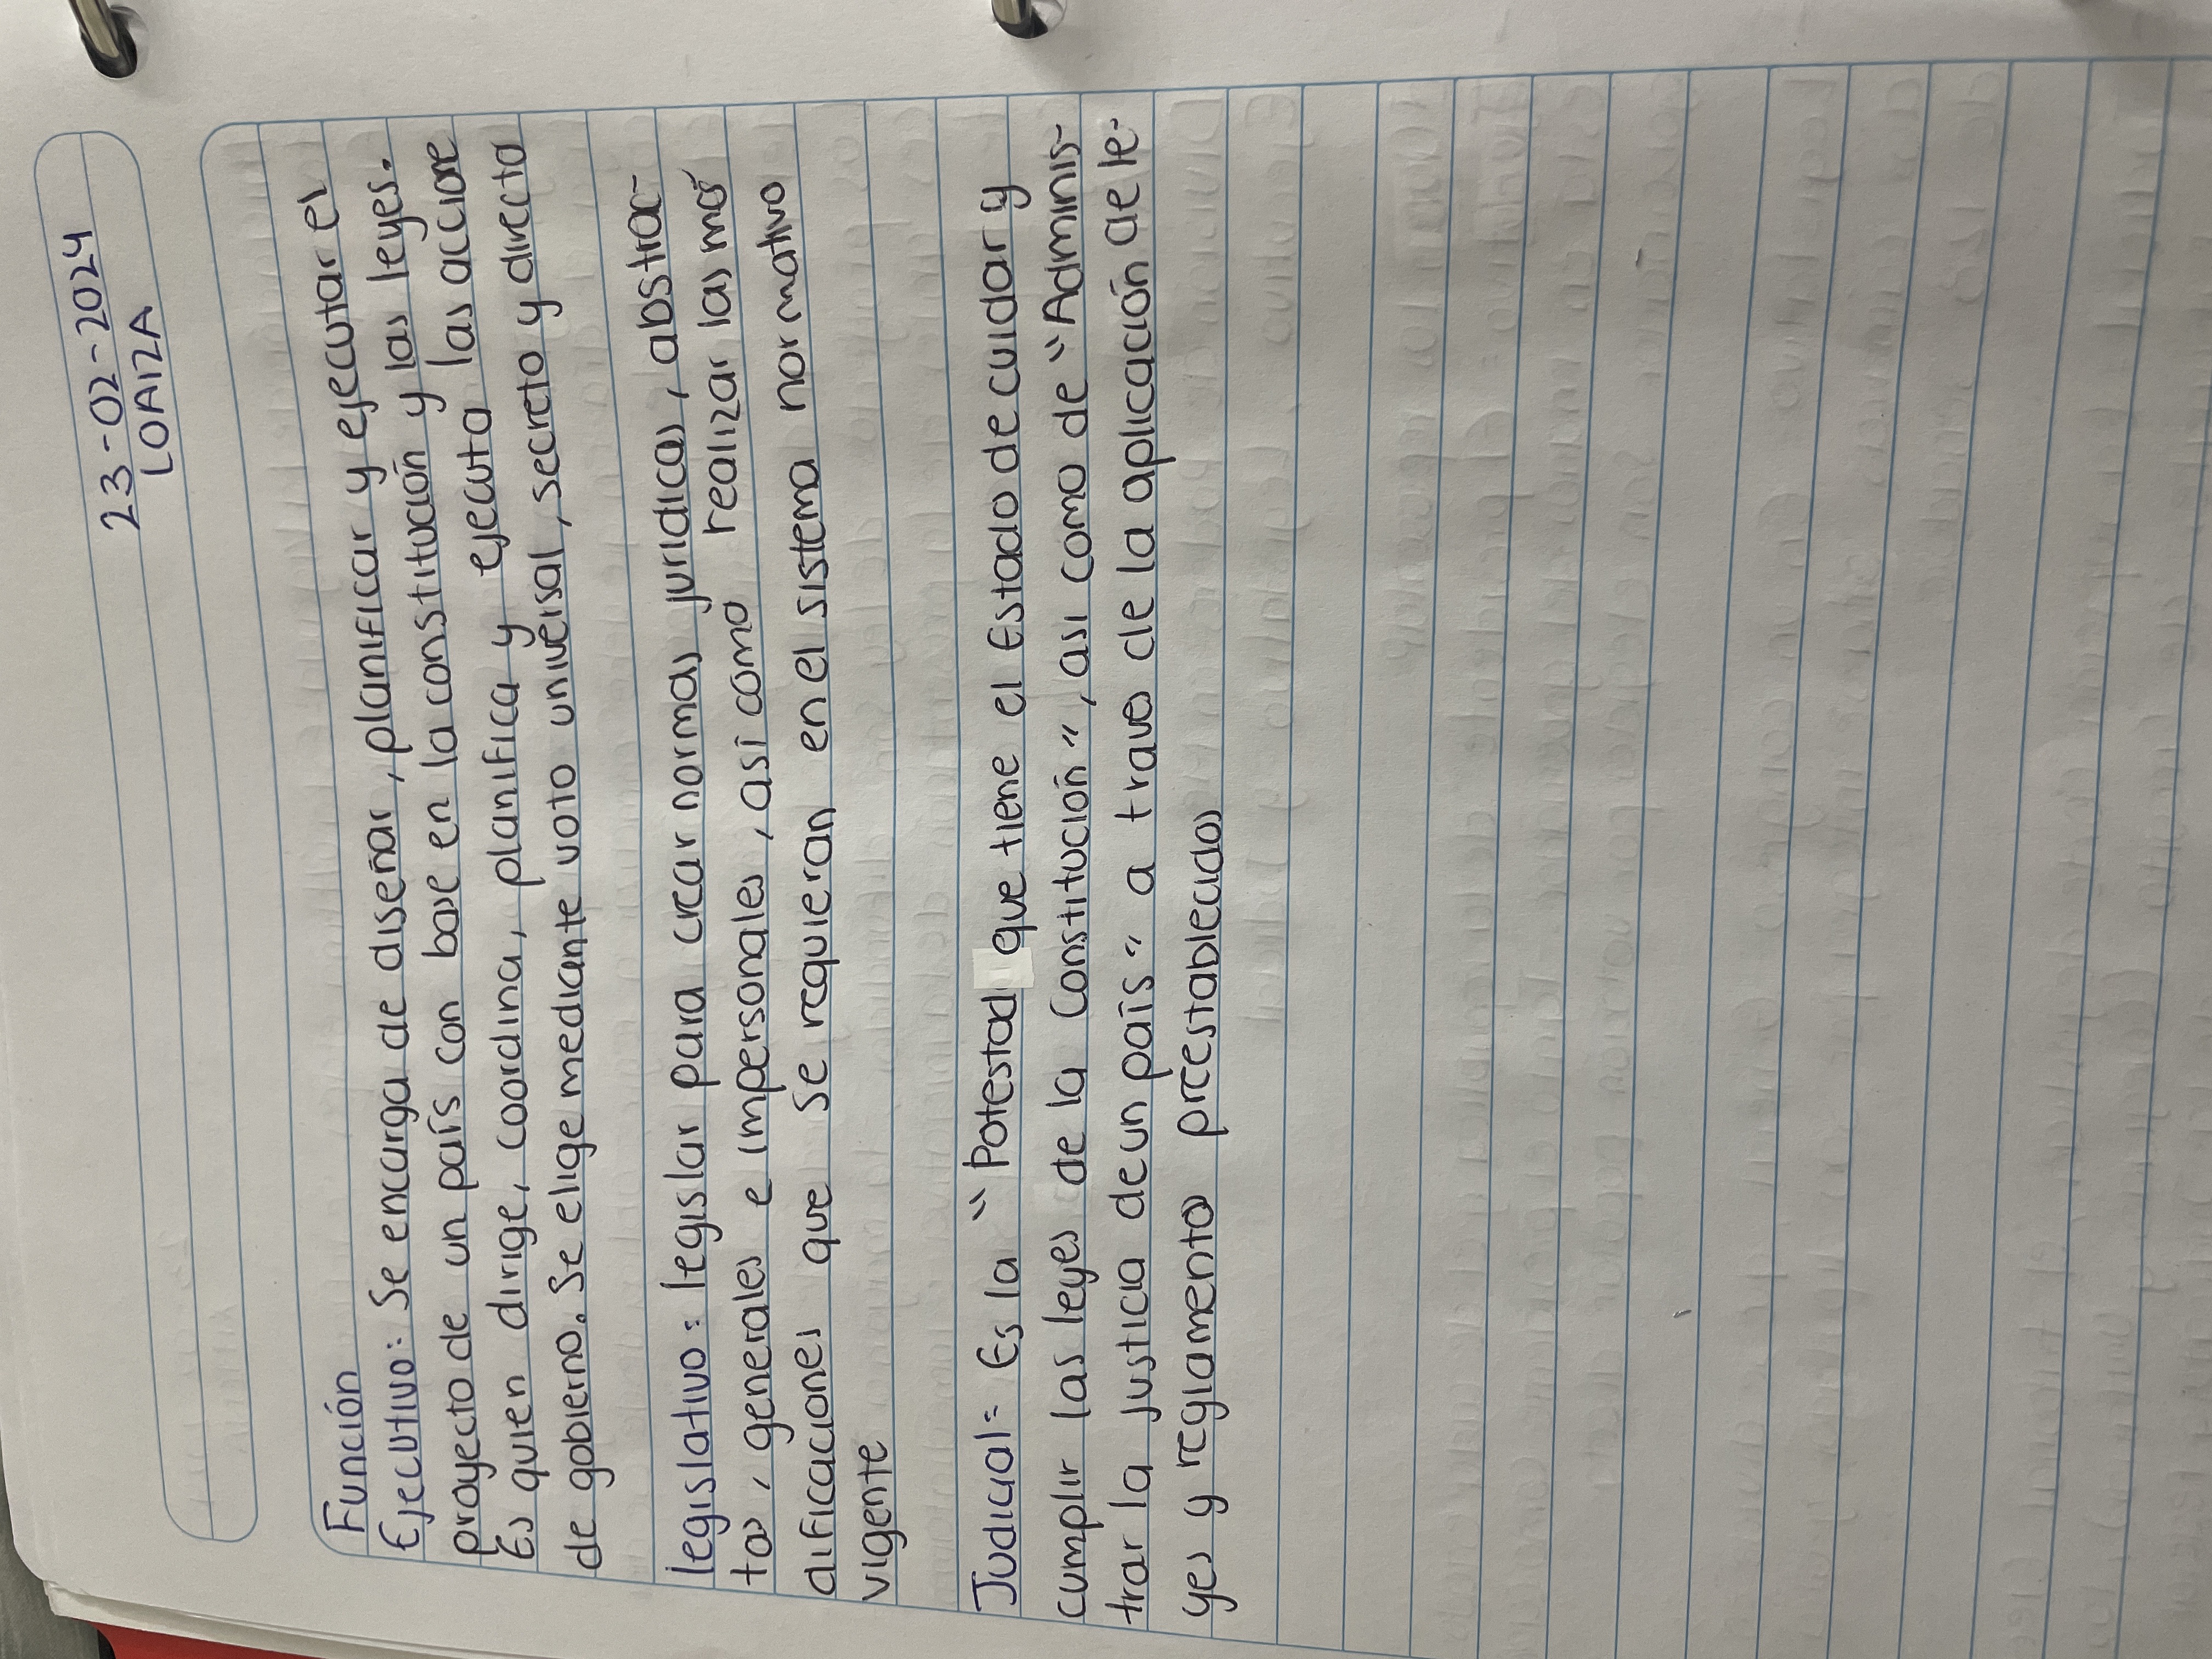 23-02-2024
LOAIZA
Función
Ejecutivo: Se encarga de diseñar, planificar y ejecutar el
proyecto de un país con base en la constitución y las leyes.
Es quien dirige, coordina, planifica y ejecuta las accione
de gobierno. Se elige mediante voto universal, secreto y directo
legislativo: legislar para crear normas juridicas, abstrac-
tas, generales e impersonales, así como realizar las mo
dificaciones que se requieran en el sistema normativo
vigente
Judicial: Es la "Potestad que tiene el Estado de cuidar y
cumplir las leyes de la Constitución", asi como de "Adminis-
trar la justicia de un país" a traves de la aplicación de le-
yes y reglamentos preestablecidos